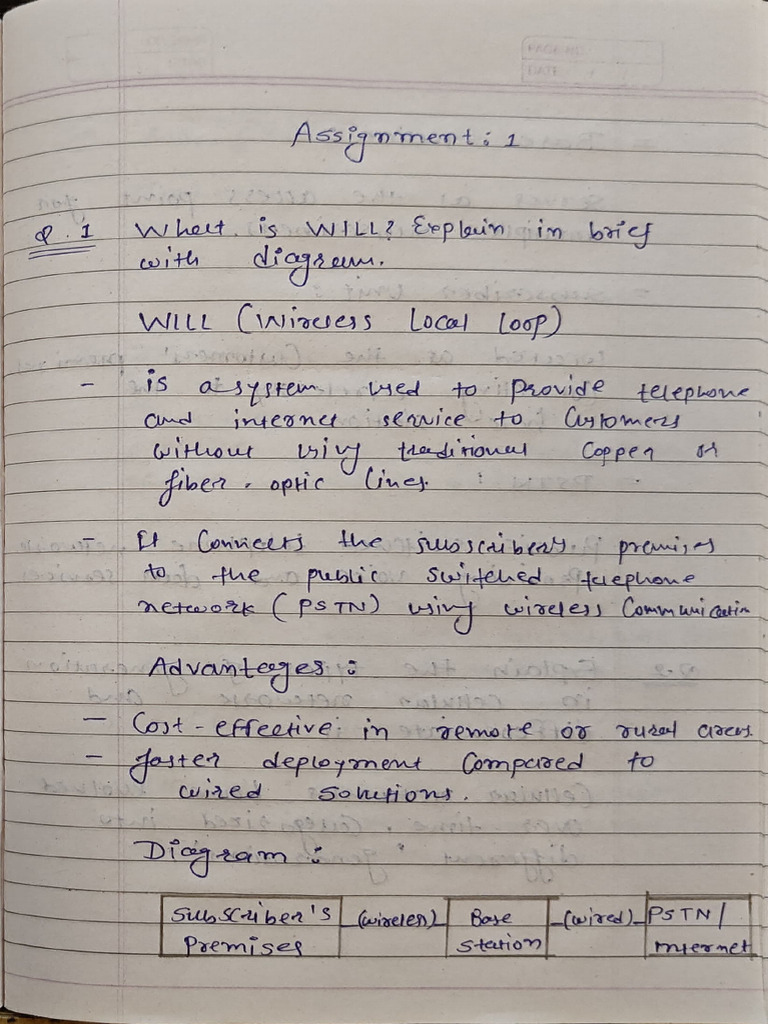 PAGE NO.
DATE
Assignment: 1
Q.1 What is WILL? Explain in brief
with diagram.
WILL (Wireless Local Loop)
- is a system used to provide telephone
and internet service to Customers
without using traditional Copper or
fiber-optic lines.
- It Connects the subscriber's premises
to the public switched telephone
network (PSTN) using wireless Communication
Advantages:
- Cost-effective in remote or rural areas.
- faster deployment Compared to
wired solutions.
Diagram:
Subscriber's (wireless) Base (wired) PSTN/
Premises Station Internet